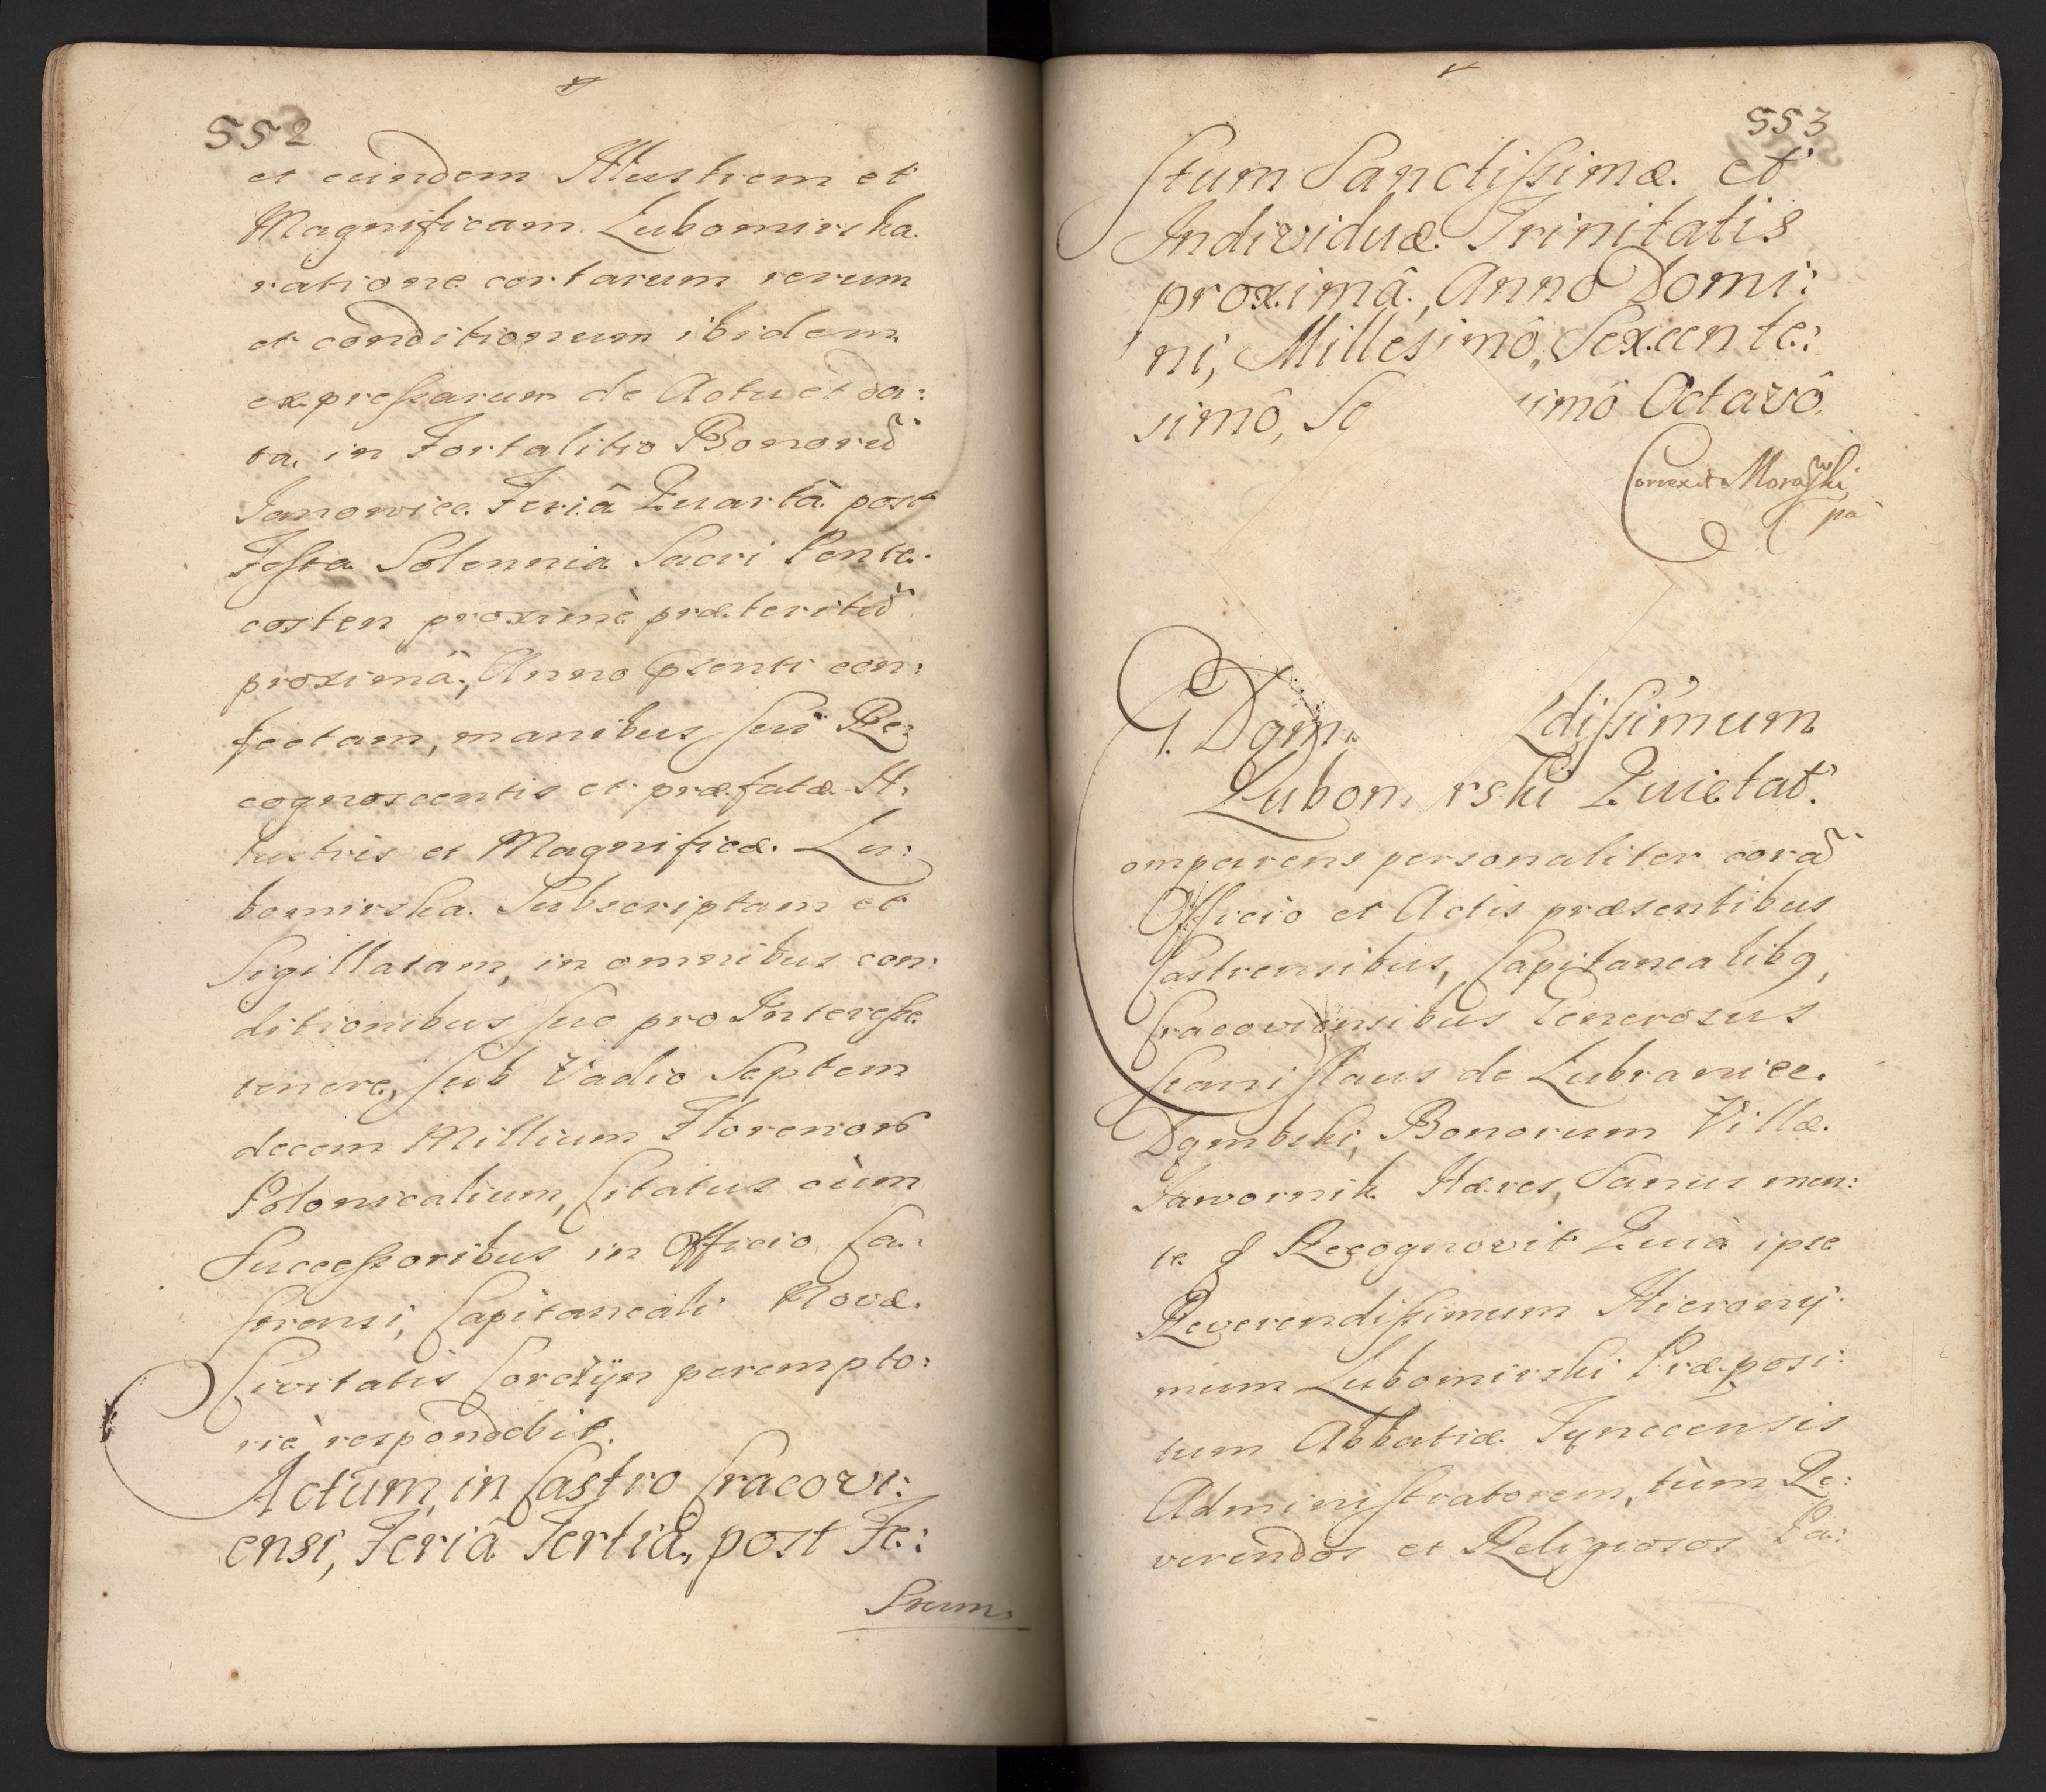 552
et eundem Illustrem et
Magnificam Lubomirska
ratione certarum rerum
et conditionum ibidem
expressarum de Actu et da:
ta, in Fortalitio Bonorũ
Janowice Feriâ Quartâ post
Festa Solennia Sacri Pente:
costen proximè præteritũ
proximâ, Anno pñsenti con:
fectam, manibus sui Re:
cognoscentis et præfatæ Il:
lustris et Magnificæ Lu:
bomirska Subscriptam et
Sigillatam, in omnibus con:
ditionibus suo pro Interesse
tenere, sub Vadio Septem
decem Millium Florenorũ
Polonicalium, Citatus cùm
Successoribus in Officio Ca:
strensi, Capitaneali Novæ
Civitatis Corczÿn perempto:
riè respondebit.
Actum in Castro Cracovi:
ensi, Feriâ Tertiâ, post Fe:
Stum
553
stum Sanctissimæ et
Individuæ Trinitatis
proximâ, Anno Domi:
ni, Millesimô, Sexcente:
simô, Se imô Octavô
Correxit Morawski
pa
G. Dąm dissimum
Lubom rski Quietat.
omparens personaliter corã
Officio et Actis præsentibus
Castrensibus, Capitanealibq,
Cracoviensibus Generosus
Stanislaus de Lubranice
Dąmbski, Bonorum Villæ
Jawornik Hæres, Sanus men:
te &c Recognovit Quia ipse
Reverendissimum Hieronÿ:
mum Lubomirski Præposi:
tum Abbatiæ Tynecensis
Administratorem, tùm Re:
verendos et Religiosos Pa: